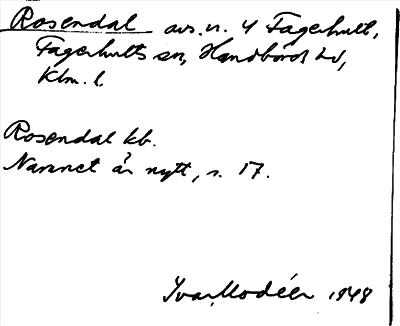 Rosendal avs. u. 4 Fagerhult,
Fagerhults sn, Handbörds hd,
Klm. l.
Rosendal kb.
Namnet är nytt, s. 17.
Ivar Modéer 1948